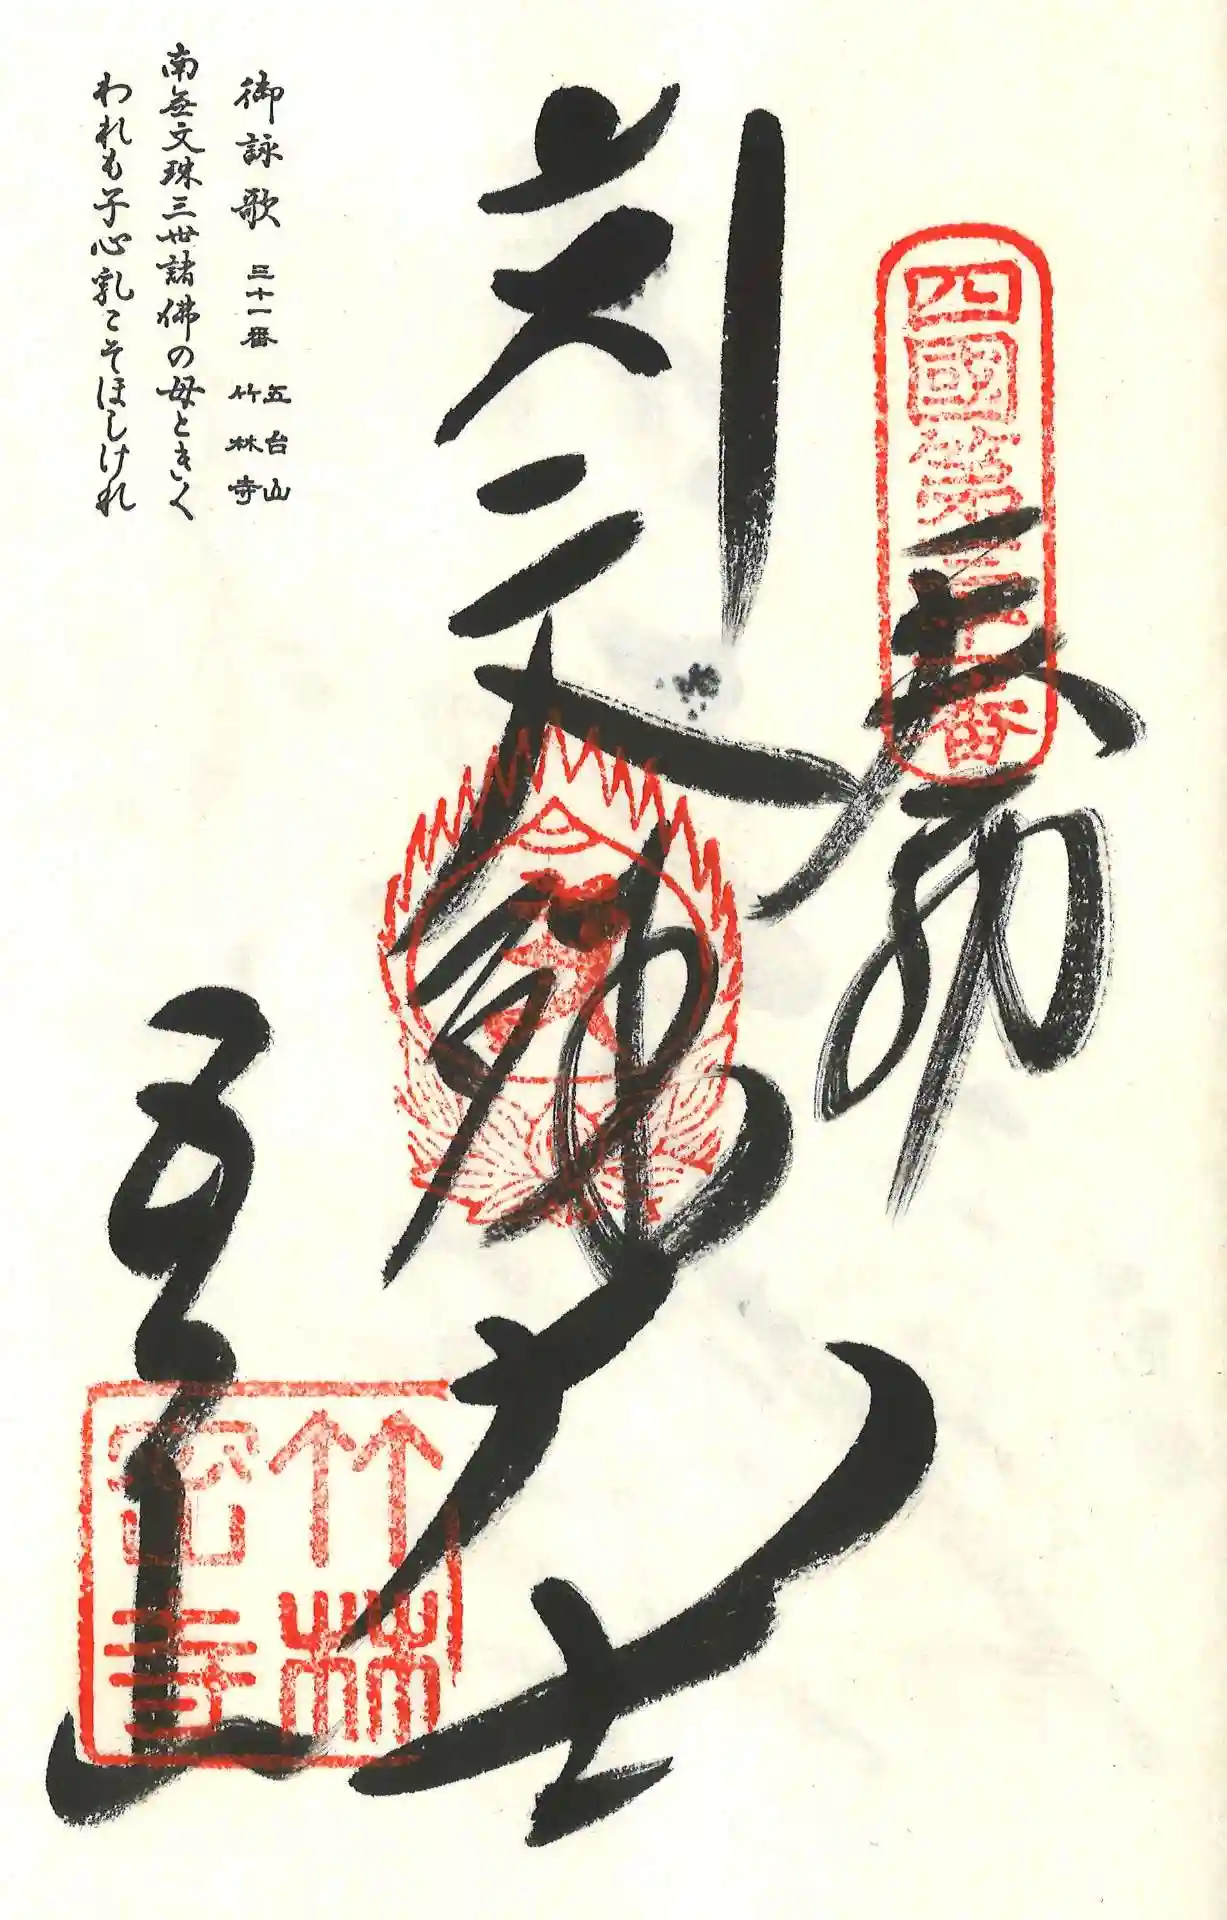 四國第三十一番
奉納
五台山
竹林密寺
御詠歌 三十一番 五台山 竹林寺
南無文珠三世諸佛の母ときく
われも子心乳こそほしけれ